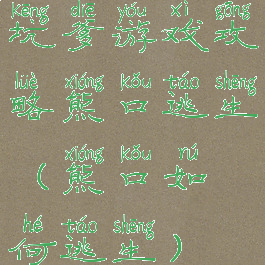 kēng diē yóu xì gōng
坑爹游戏攻
lüè xióng kǒu táo shēng
略熊口逃生
xióng kǒu rú
（熊口如
hé táo shēng
何逃生）